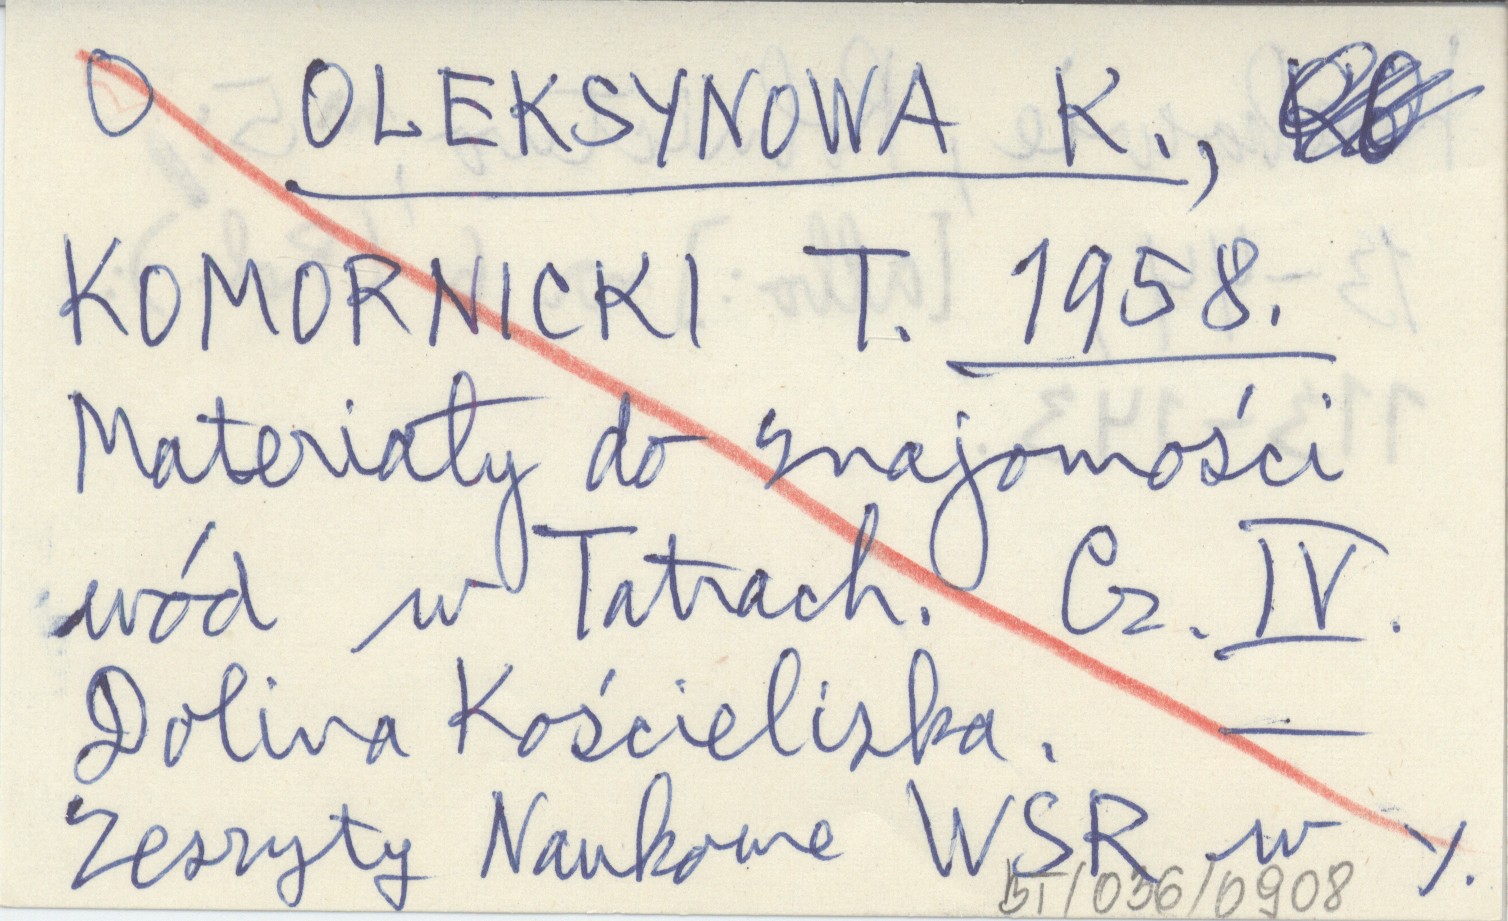 O OLEKSYNOWA K.,
KOMORNICKI T. 1958.
Materiały do znajomości
wód w Tatrach. Cz. IV.
Dolina Kościeliska. —
Zeszyty Naukowe WSR w
BT/036/0908